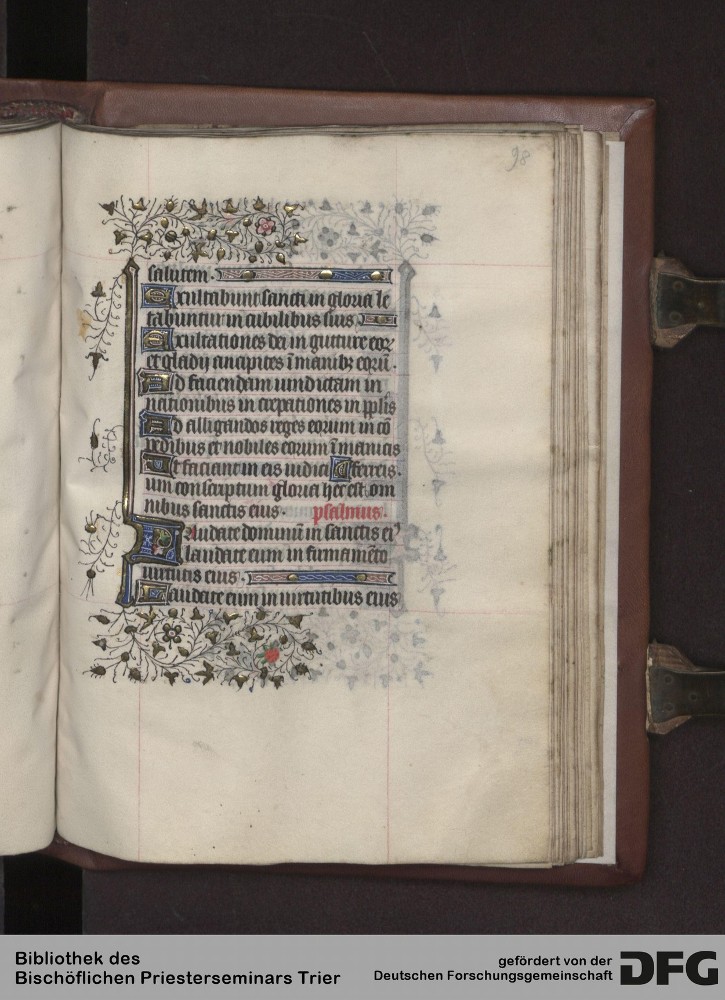 98
salutem.
Exultabunt sancti in gloria le
tabuntur in cubilibus suis.
Exultationes dei in gutture eorꝝ
et gladij ancipites ī manibꝫ eorū.
Ad faciendam uindictam in
nationibus in crepationes in ppl̄is
Ad alligandos reges eorum in cō
pedibus et nobiles eorum ī manicis
Ut faciant in eis iudici ferreis.
um conscriptum gloria hec est om
nibus sanctis eius. psalmus.
Laudate dominū in sanctis eiꝰ
laudate eum in firmamēto
uirtutis eius.
Laudate eum in uirtutibus eius
Bibliothek des
Bischöflichen Priesterseminars Trier
gefördert von der
Deutschen Forschungsgemeinschaft
DFG